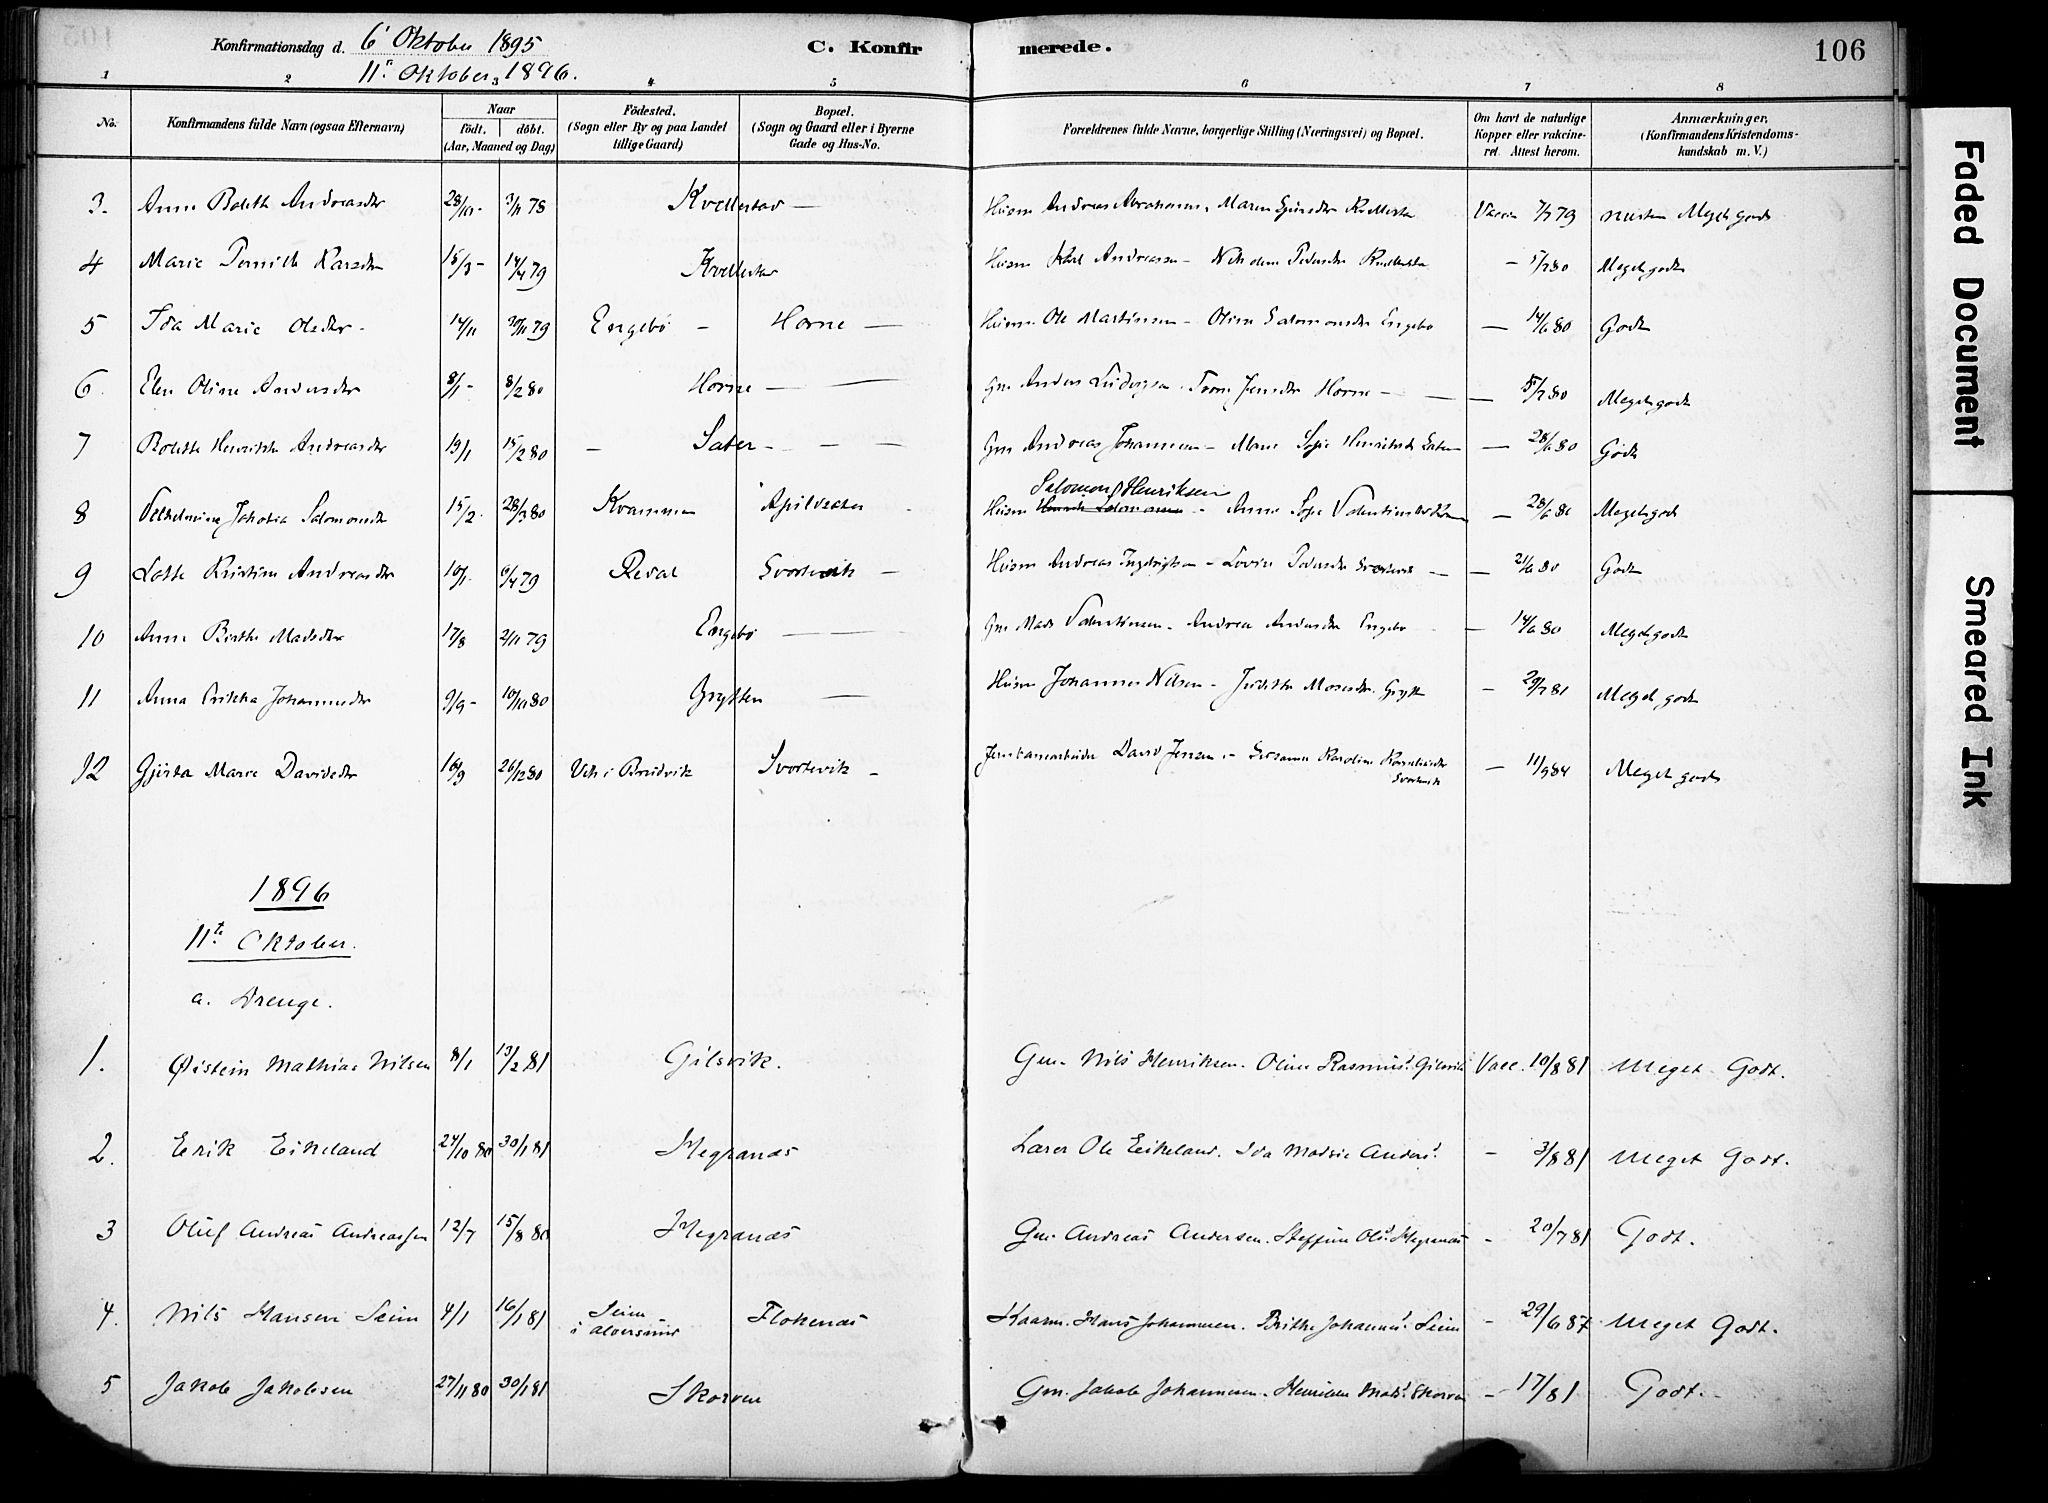 Konfirmationsdag d. 6' Oktober 1895 C. Konfirmerede. 106
11te Oktober 1896.
1 2 3 4 5 6 7 8
No. Konfirmandens fulde Navn (ogsaa Efternavn) Naar födt. döbt. (Aar, Maaned og Dag) Födested. (Sogn eller By og paa Landet tillige Gaard) Bopæl. (Sogn og Gaard eller i Byerne Gade og Hus-No. Forældrenes fulde Navne, borgerlige Stilling (Næringsvei) og Bopæl. Om havt de naturlige Kopper eller vakcineret. Attest herom. Anmærkninger, (Konfirmandens Kristendomskundskab m. V.)
3. Anne Bolette Andreasdtr 28/10 - 3/11 78 Kvellestad — Husm Andreas Abrahamsen, Maren Kvellestad Vaccin 7/7 79 næsten Meget godt
4 Marie Pernille Karsdtr 15/3 - 14/4 79 Kvellestad Husm Karl Andreassen - Pedersdtr Kvellestad - 5/7 80 Meget godt
5 Ida Marie Olsdtr - 14/11 30/11 79 Engebö - Horne — Husm Ole Martinsen - Oline Salomonsdtr Engebö — 14/6 80 Godt
6. Elen Oline Andersdtr 8/1 - 8/2 80 Horne — — Gm Anders Ludvigsen. Jensdtr Horne - — — 5/7 80 Meget godt
7 Bolette Henrikke Andreasdtr 19/1 15/2 80 - Sater - - — Gm Andreas Johannesen - Marie Sofie Henriksdtr Sater — 28/6 80 Godt
8 Vilhelmine Jakobia Salomonsdtr 15/2. 28/3 80 Kvammen Apilsæter Husm Salomon Henriksen - Anne Sofie Valentinsdtr — 28/6 81 Meget godt
9 Lotte Kristine Andreasdtr 10/1. 6/4 79 Redal Svortevik — Husm Andreas Ingebrigtsen - Lovise Pedersdtr Svortevik — — 21/6 80 Godt
10 Anne Birthe Madsdtr 17/8 2/11 79 Engebö — — Gm Mads Valentinsen - Andrea Andersdtr Engebö — 14/6 80 Meget godt
11 Anna Erikka Johannesdtr 9/9 - 10/10 80 Grytten — Husm Johannes Nilsen - Judithe Mosesdtr. Grytten - 29/7 81 Meget godt
12 Gjörta Marie Davidsdtr 16/9 26/12 80 Vik i Brudvik Svortevik - Jernbanearbeider David Jensen - Susanna Karoline Svortevik — 11/9 84 Meget godt
1896
11te Oktober.
a. Drenge.
1. Øistein Mathias Nilsen 8/1 13/2 81 Gilsvik. Gm. Nils Henriksen. Oline Rasmusd. Gilsvik Vacc. 10/8 81 Meget Godt.
2. Erik Eikeland 24/10 80 30/1 81 Hegranæs Lærer Ole Eikeland. Ida Madsie Andersd. - 3/8 81 Meget Godt.
3 Oluf Andreas Andreassen 12/7 15/8 80 Hegranæs Gm. Andreas Andersen. Steffine Olsd. Hegranæs - 20/7 81 Godt.
4. Nils Hansen Seim 4/1 16/1 81 Seim i Alversund Flokenæs Kaarm. Hans Johannesen. Brithe Johannesd. Seim - 29/6 87 Meget Godt.
5 Jakob Jakobsen 27/11 80 30/1 81 Skorven Gm. Jakob Johannesen. Madsd. Skorven - 17/81 Godt.
Faded Document
Smeared Ink